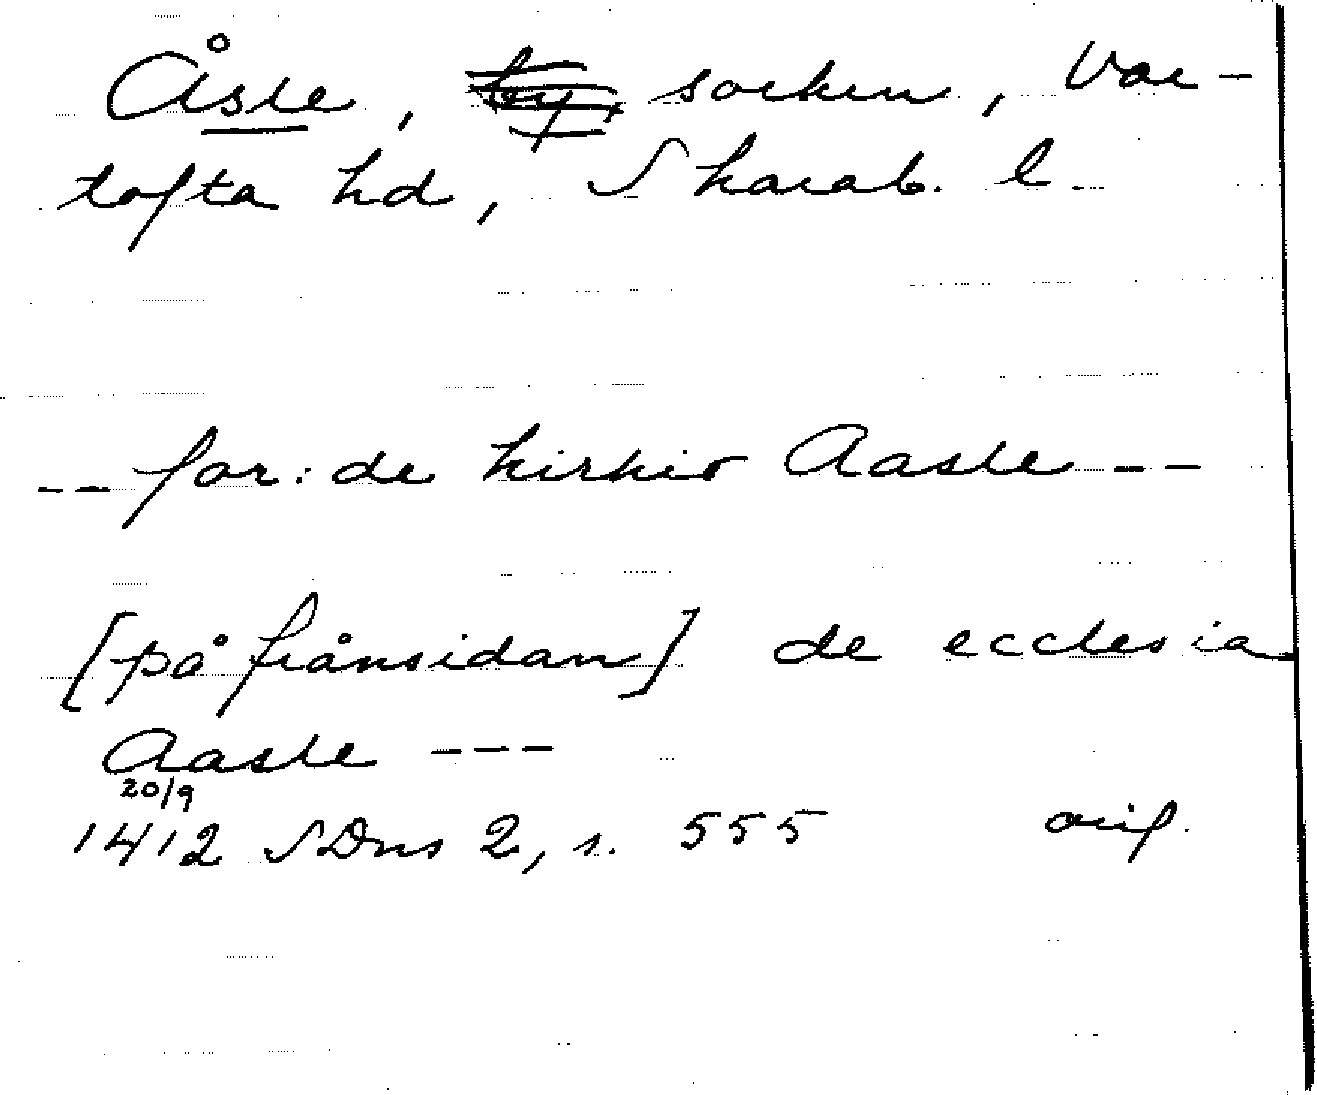 Åsle, by, socken, Var-
tofta hd, Skarab. l
-- for: de kirkio Aasle --
[på frånsidan] de ecclesia
Aasle ---
20/9
1412 SDns 2, s. 555 orig.